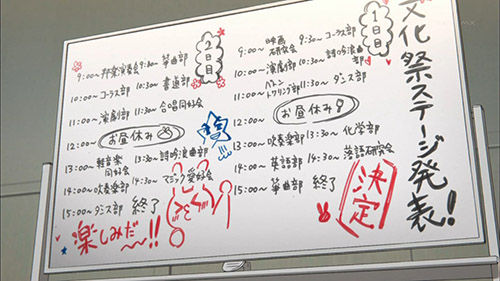 文化祭ステージ発表!
決定
1日目
9:00〜 映画研究会 9:30〜 コーラス部
10:00〜 演劇部 10:30〜 詩吟浪曲部
11:00〜 バトントワリング部 11:30〜 ダンス部
12:00〜 お昼休み
13:00〜 吹奏楽部 13:30〜 化学部
14:00〜 英語部 14:30〜 落語研究会
15:00〜 箏曲部 終了
2日目
9:00〜 邦楽演奏会 9:30〜 箏曲部
10:00〜 コーラス部 10:30〜 書道部
11:00〜 演劇部 11:30〜 合唱同好会
12:00〜 お昼休み
13:00〜 軽音楽同好会 13:30〜 詩吟浪曲部
14:00〜 吹奏楽部 14:30〜 マジック愛好会
15:00〜 ダンス部 終了
楽しみだ〜!!
MX